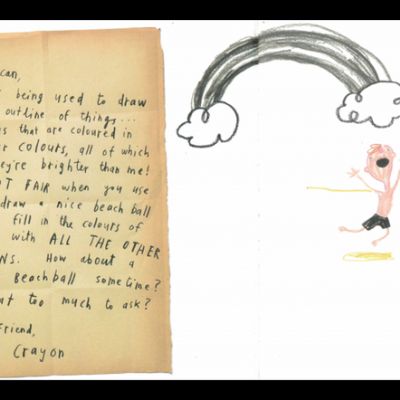 can,
being used to draw
outline of things...
s that are coloured in
r COLOURS, all of which
ey're brighter than me!
OT FAIR when you use
draw a nice beach ball
fill in the colours of
with ALL THE OTHER
NS. How about a
Beachball sometime?
at too much to ask?
Friend,
Crayon